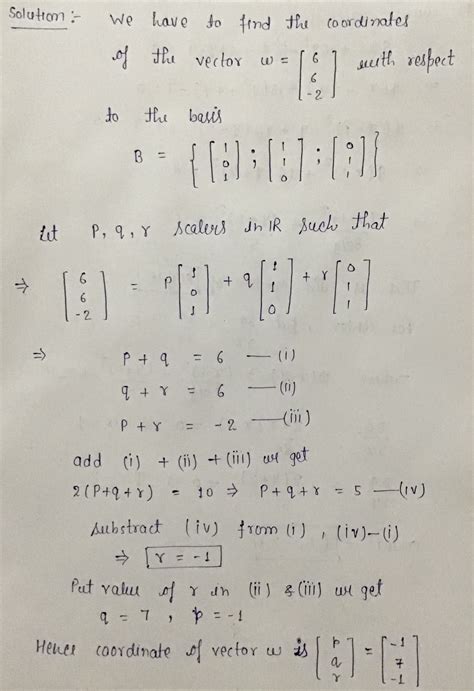 Solution :- We have to find the coordinates
of the vector w = [6 6 -2] with respect
to the basis
B = { [1 0 1] ; [1 1 0] ; [0 1 1] }
Let P, q, r scalers in IR such that
⇒ [6 6 -2] = P [1 0 1] + q [1 1 0] + r [0 1 1]
⇒ P + q = 6 — (i)
q + r = 6 — (ii)
P + r = -2 — (iii)
add (i) + (ii) + (iii) we get
2(P+q+r) = 10 ⇒ P+q+r = 5 — (iv)
Substract (iv) from (i) , (iv)-(i)
⇒ r = -1
Put value of r in (ii) & (iii) we get
q = 7 , p = -1
Hence coordinate of vector w is [p q r] = [-1 7 -1]